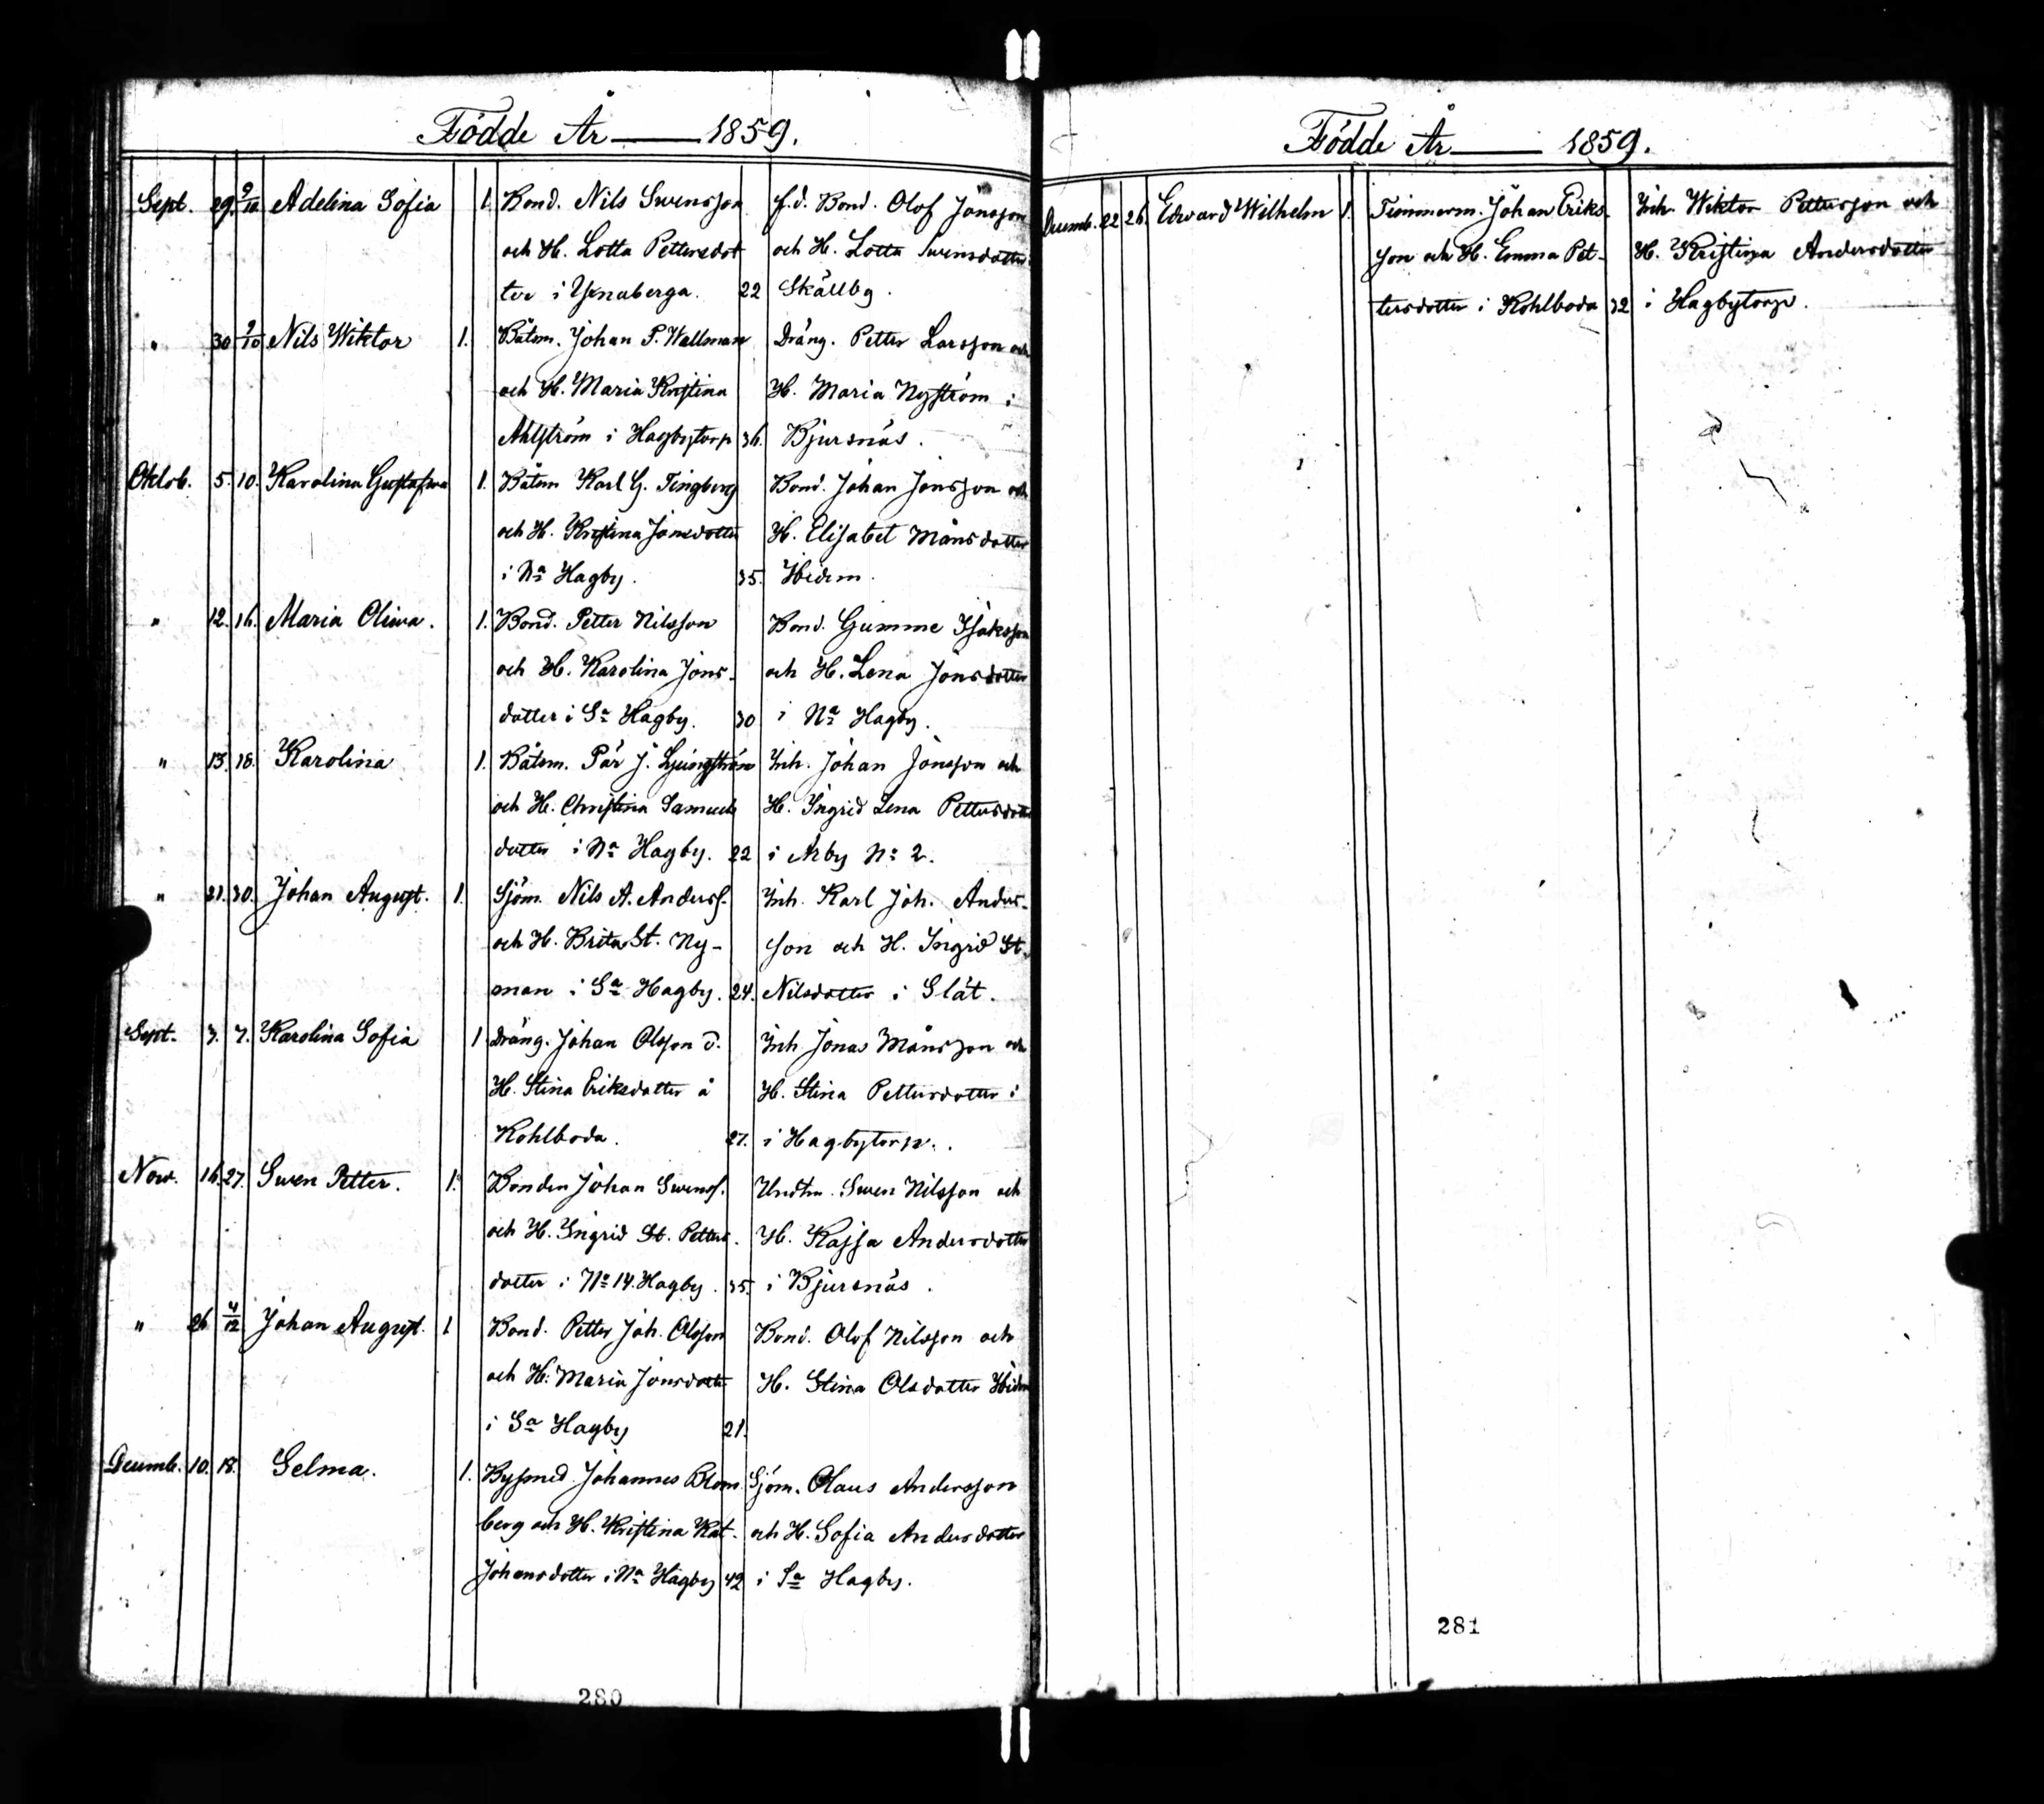 Födde År 1859.
Sept. 29. 9/10 Adelina Sofia 1. Bond. Nils Swensson f.d. Bond. Olof Jönsson
och H. Lotta Pettersdot och H. Lotta Swensdotter
ter i Ysnaberga. 22 Skällby.
" 30 9/10 Nils Wiktor 1. Båtsm. Johan P. Wallman Dräng. Petter Larsson och
och H. Maria Kristina H. Maria Nyström i
Ahlström i Hagbytorp 36. Bjursnäs.
Oktob. 5. 10. Karolina Gustafwa 1. Båtsm Karl G. Tingberg Bond. Johan Jonsson och
och H. Kristina Jonsdotter H. Elisabet Månsdotter
i Na Hagby. 35. Ibidem.
" 12. 16. Maria Oliwa. 1. Bond. Petter Nilsson Bond. Gumme Isaksson
och H. Karolina Jons- och H. Lena Jonsdotter
dotter i Sa Hagby. 30 i Na Hagby.
" 13. 18. Karolina 1. Båtsm. Pär J. Ljungström Inh. Johan Jonsson och
och H. Christina Samuels H. Ingrid Lena Pettersdotter
dotter i Na Hagby. 22 i Arby No 2.
" 21. 30. Johan August. 1. Sjöm. Nils A. Anderss. Inh. Karl Joh. Anders-
och H. Brita St. Ny- son och H. Ingrid St.
man i Sa Hagby. 24. Nilsdotter i Slät.
Sept. 3. 7. Karolina Sofia 1 Dräng. Johan Olsson o. Inh. Jonas Månsson och
H. Stina Eriksdotter å H. Stina Pettersdotter i
Kohlboda. 27. i Hagbytorp.
Now. 16. 27. Swen Petter. 1. Bonden Johan Swenss. Undtm. Swen Nilsson och
och H. Ingrid St. Petters. H. Kajsa Andersdotter
dotter i No 14. Hagby. 35. i Bjursnäs.
" 26 4/12 Johan August. 1 Bond. Petter Joh. Olsson Bond. Olof Nilsson och
och H. Maria Jonsdotter H. Stina Olsdotter Ibidm
i Sa Hagby 21.
Decemb. 10. 18. Selma. 1. Bysmed. Johannes Blom Sjöm. Olaus Andersson
berg och H. Kristina Kat. och H. Sofia Andersdotter
Johansdotter i Na Hagby 42 i Sa Hagby.
280
Födde År 1859.
Decemb. 22 26. Edward Wilhelm 1. Timmerm. Johan Eriks- Inh. Wiktor Pettersson och
son och H. Emma Pet- H. Kristina Andersdotter
tersdotter i Kohlboda 32 i Hagbytorp.
281